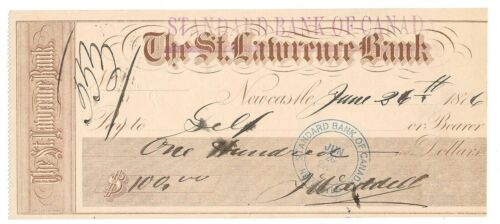 STANDARD BANK OF CANAD
The St. Lawrence Bank
The St. Lawrence Bank.
Newcastle, June 1876
Pay to Self or Bearer
One Hundred Dollars
STANDARD BANK OF CANADA
JUN
$ 100.00
J Waddell